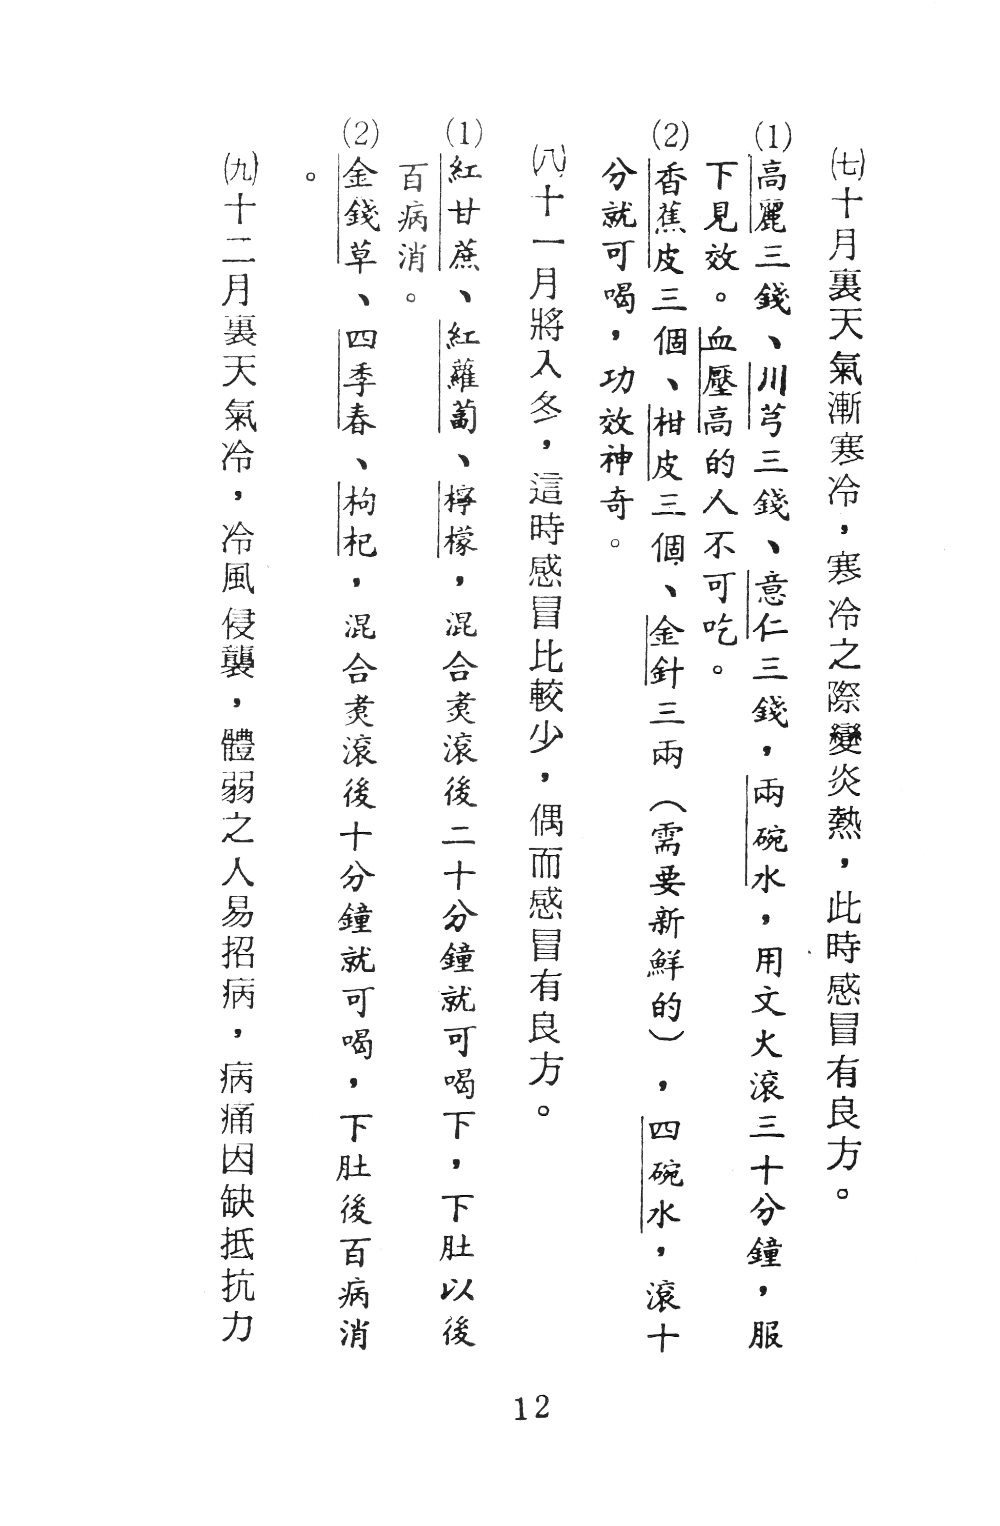 ㈦十月裏天氣漸寒冷，寒冷之際變炎熱，此時感冒有良方。
⑴高麗三錢、川芎三錢、意仁三錢，兩碗水，用文火滾三十分鐘，服
下見效。血壓高的人不可吃。
⑵香蕉皮三個、柑皮三個、金針三兩（需要新鮮的），四碗水，滾十
分就可喝，功效神奇。
㈧十一月將入冬，這時感冒比較少，偶而感冒有良方。
⑴紅甘蔗、紅蘿蔔、檸檬，混合煑滾後二十分鐘就可喝下，下肚以後
百病消。
⑵金錢草、四季春、枸杞，混合煑滾後十分鐘就可喝，下肚後百病消
。
㈨十二月裏天氣冷，冷風侵襲，體弱之人易招病，病痛因缺抵抗力
12